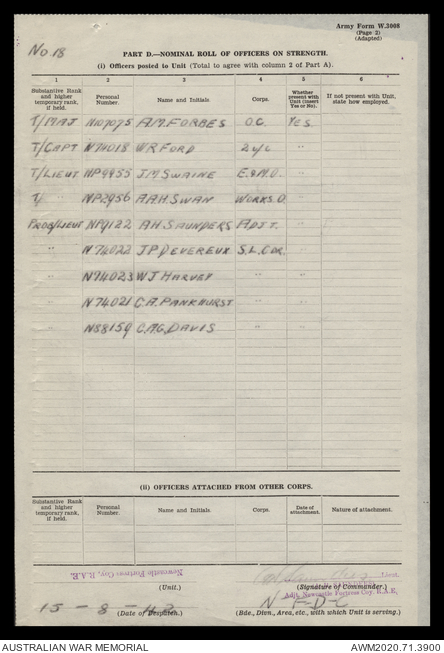 Army Form W.3008
(Page 2)
(Adapted)
No 18
PART D.—NOMINAL ROLL OF OFFICERS ON STRENGTH.
(i) Officers posted to Unit (Total to agree with column 2 of Part A).
1 2 3 4 5 6
Substantive Rank and higher temporary rank, if held. Personal Number. Name and Initials. Corps. Whether present with Unit (insert Yes or No). If not present with Unit, state how employed.
T/MAJ A.M. FORBES O.C. Yes
T/CAPT N74018 W.R FORD 2 i/c "
T/LIEUT NP9955 J.M SWAINE E & M.O. "
T/ " NP2956 A.A.H SWAN WORKS O. "
PROB/LIEUT NP9122 A.H. SAUNDERS ADJT. "
" N74022 J.P DEVEREUX S.L. CDR. "
" N74023 W.J HARVEY " "
" N74021 C.A. PANKHURST " "
" N88159 C.A.G. DAVIS " "
(ii) OFFICERS ATTACHED FROM OTHER CORPS.
Substantive Rank and higher temporary rank, if held. Personal Number. Name and Initials. Corps. Date of attachment. Nature of attachment.
Newcastle Fortress Coy, R.A.E. Lieut.
(Unit.) (Signature of Commander.)
Adjt. Newcastle Fortress Coy. R.A.E.
15 - 8 - 42 N F-D-C
(Date of Despatch.) (Bde., Divn., Area, etc., with which Unit is serving.)
AUSTRALIAN WAR MEMORIAL AWM2020.71.3900